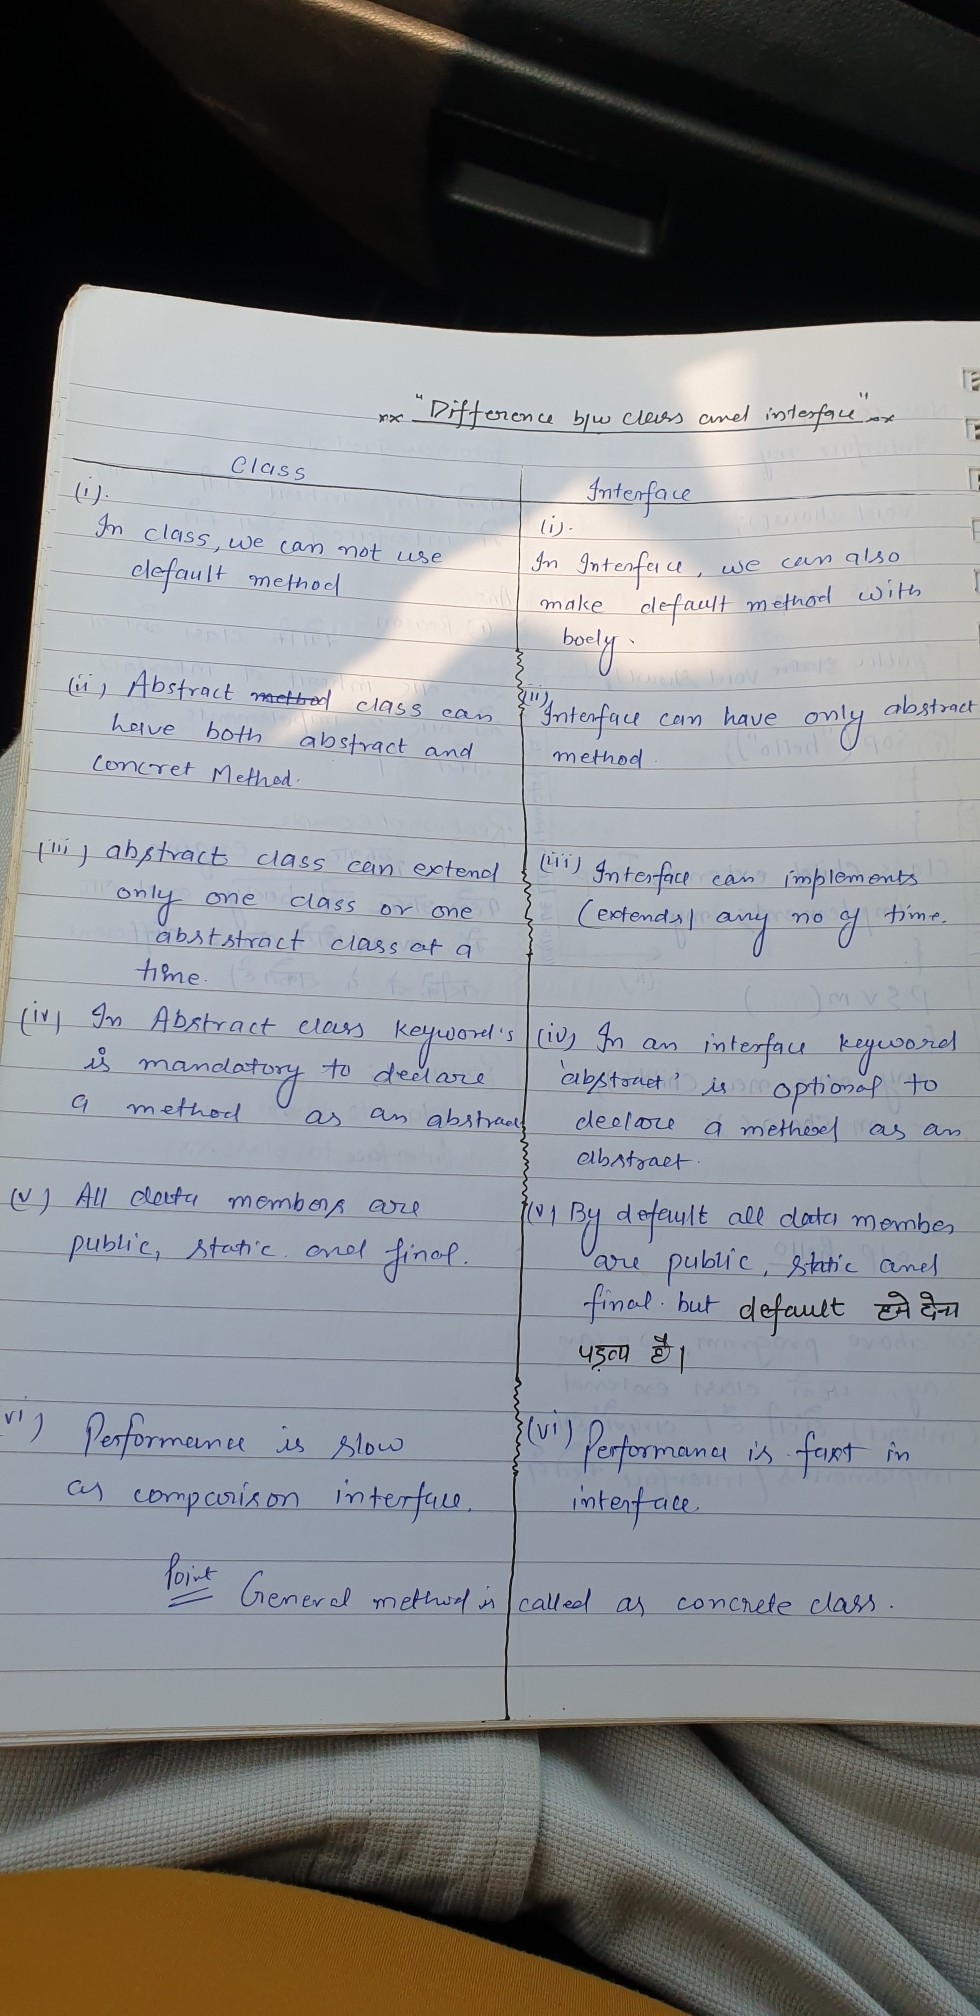 "Difference b/w class and interface"
Class
(i).
In class, we can not use
default method
(ii) Abstract method class can
have both abstract and
Concret Method.
(iii) abstract class can extend
only one class or one
abststract class at a
time.
(iv) In Abstract class keyword's
is mandatory to declare
a method as an abstract
(v) All data members are
public, static. and final.
vi) Performance is slow
as comparison interface.
Interface
(i).
In Interface, we can also
make default method with
body.
(ii) Interface can have only abstract
method.
(iii) Interface can implements
(extends) any no of time.
(iv) In an interface keyword
'abstract' is optional to
declare a method as an
abstract.
(v) By default all data member
are public, static and
final. but default हमे देना
पड़ता है।
(vi) Performance is fast in
interface.
Point General method is called as concrete class.